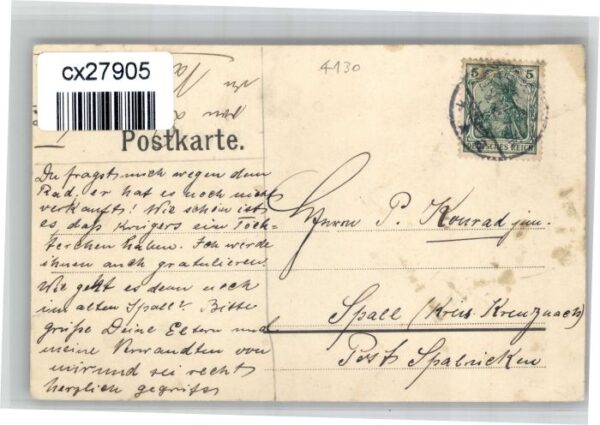 cx27905
4130
5
DEUTSCHES REICH
Postkarte.
Du fragst mich wegen dem
Rad. er hat es noch nicht
verkauft! Wie schön ist
es, daß Krügers ein Töch-
terchen haben. Ich werde
ihnen auch gratulieren
Wie geht es denn noch
im alten Spall? Bitte
grüße Deine Eltern und
meine Verwandten von
mir und sei recht
herzlich gegrüßt
Herrn P. Konrad jun.
Spall (Kreis Kreuznach)
Post Spabrücken